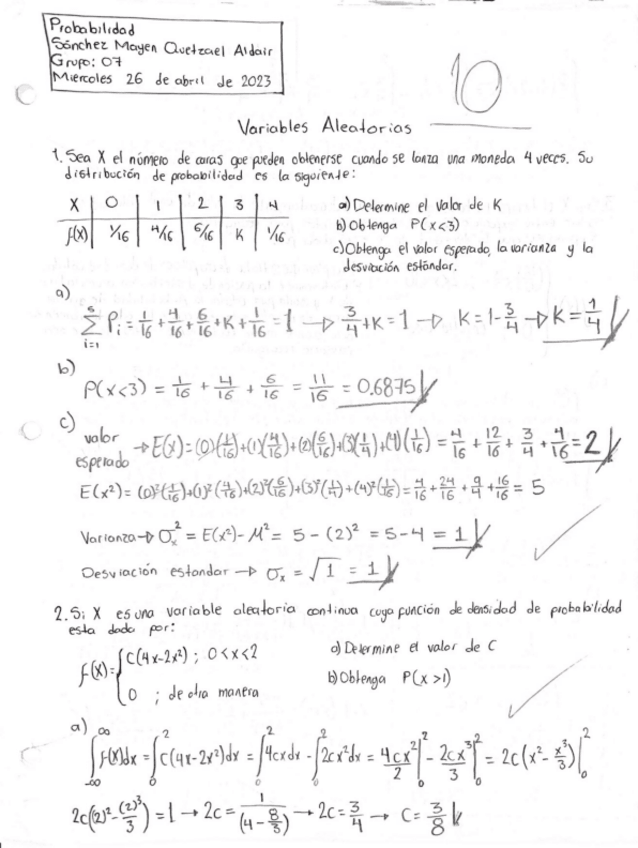 Probabilidad
Sánchez Mayen Quetzael Aldair
Grupo: 07
Miercoles 26 de abril de 2023
10
Variables Aleatorias
1. Sea X el número de caras que pueden obtenerse cuando se lanza una moneda 4 veces. Su
distribución de probabilidad es la siguiente:
X | 0 | 1 | 2 | 3 | 4
f(X) | 1/16 | 4/16 | 6/16 | K | 1/16
a) Determine el valor de K
b) Obtenga P(x<3)
c) Obtenga el valor esperado, la varianza y la
desviación estándar.
a)
∑ᵢ₌₁⁵ Pᵢ = 1/16 + 4/16 + 6/16 + K + 1/16 = 1 → 3/4 + K = 1 → K = 1 - 3/4 → K = 1/4
b)
P(x<3) = 1/16 + 4/16 + 6/16 = 11/16 = 0.6875
c)
valor esperado → E(x) = (0)(1/16)+(1)(4/16)+(2)(6/16)+(3)(1/4)+(4)(1/16) = 4/16 + 12/16 + 3/4 + 4/16 = 2
E(x²) = (0)²(1/16)+(1)²(4/16)+(2)²(6/16)+(3)²(1/4)+(4)²(1/16) = 4/16 + 24/16 + 9/4 + 16/16 = 5
Varianza → σₓ² = E(x²) - M² = 5 - (2)² = 5 - 4 = 1
Desviación estandar → σₓ = √1 = 1
2. Si X es una variable aleatoria continua cuya función de densidad de probabilidad
esta dada por:
f(X) = { C(4x-2x²) ; 0<x<2
0 ; de otra manera
a) Determine el valor de C
b) Obtenga P(x>1)
a)
∫₋∞^∞ f(x)dx = ∫₀² C(4x-2x²)dx = ∫₀² 4cxdx - ∫₀² 2cx²dx = 4cx²/2 |₀² - 2cx³/3 |₀² = 2c(x² - x³/3)|₀²
2c((2)² - (2)³/3) = 1 → 2c = 1/(4 - 8/3) → 2c = 3/4 → C = 3/8